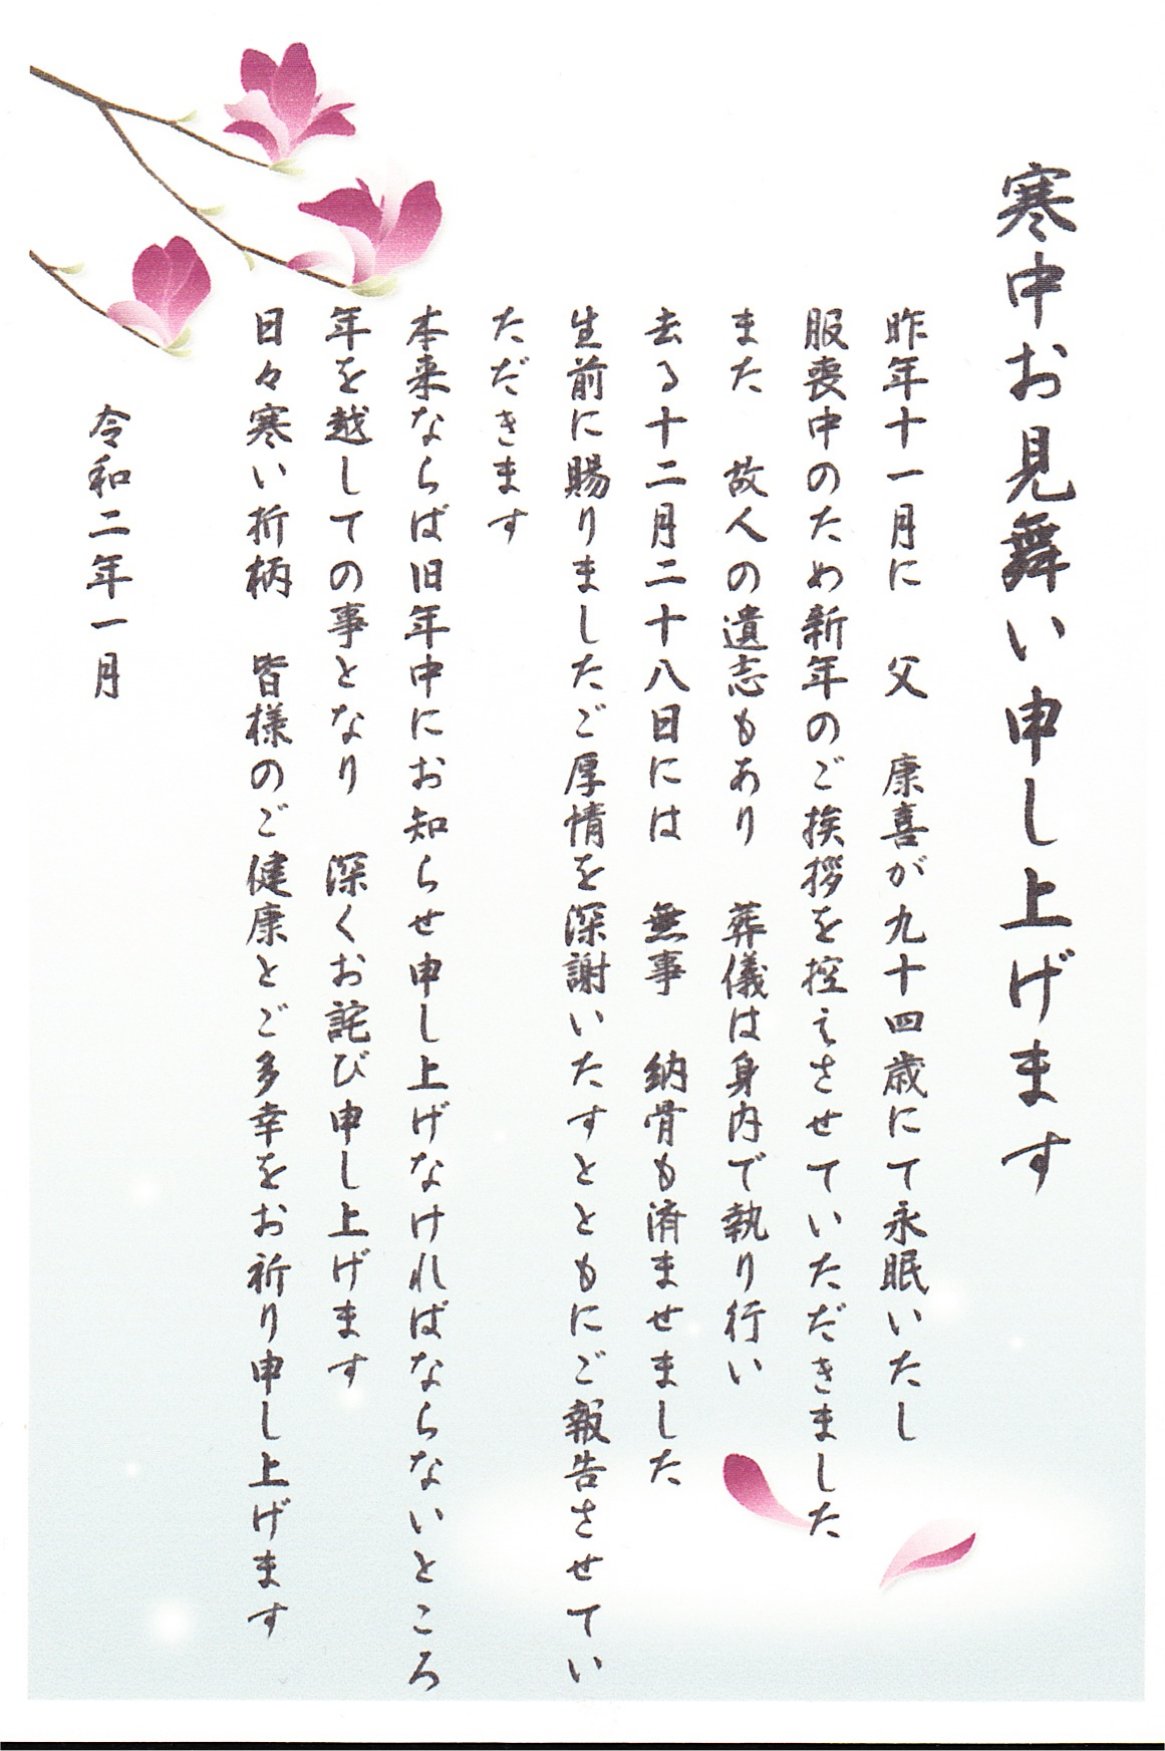 寒中お見舞い申し上げます
昨年十一月に　父　康喜が九十四歳にて永眠いたし
服喪中のため新年のご挨拶を控えさせていただきました
また　故人の遺志もあり　葬儀は身内で執り行い
去る十二月二十八日には　無事　納骨も済ませました
生前に賜りましたご厚情を深謝いたすとともにご報告させてい
ただきます
本来ならば旧年中にお知らせ申し上げなければならないところ
年を越しての事となり　深くお詫び申し上げます
日々寒い折柄　皆様のご健康とご多幸をお祈り申し上げます
令和二年一月